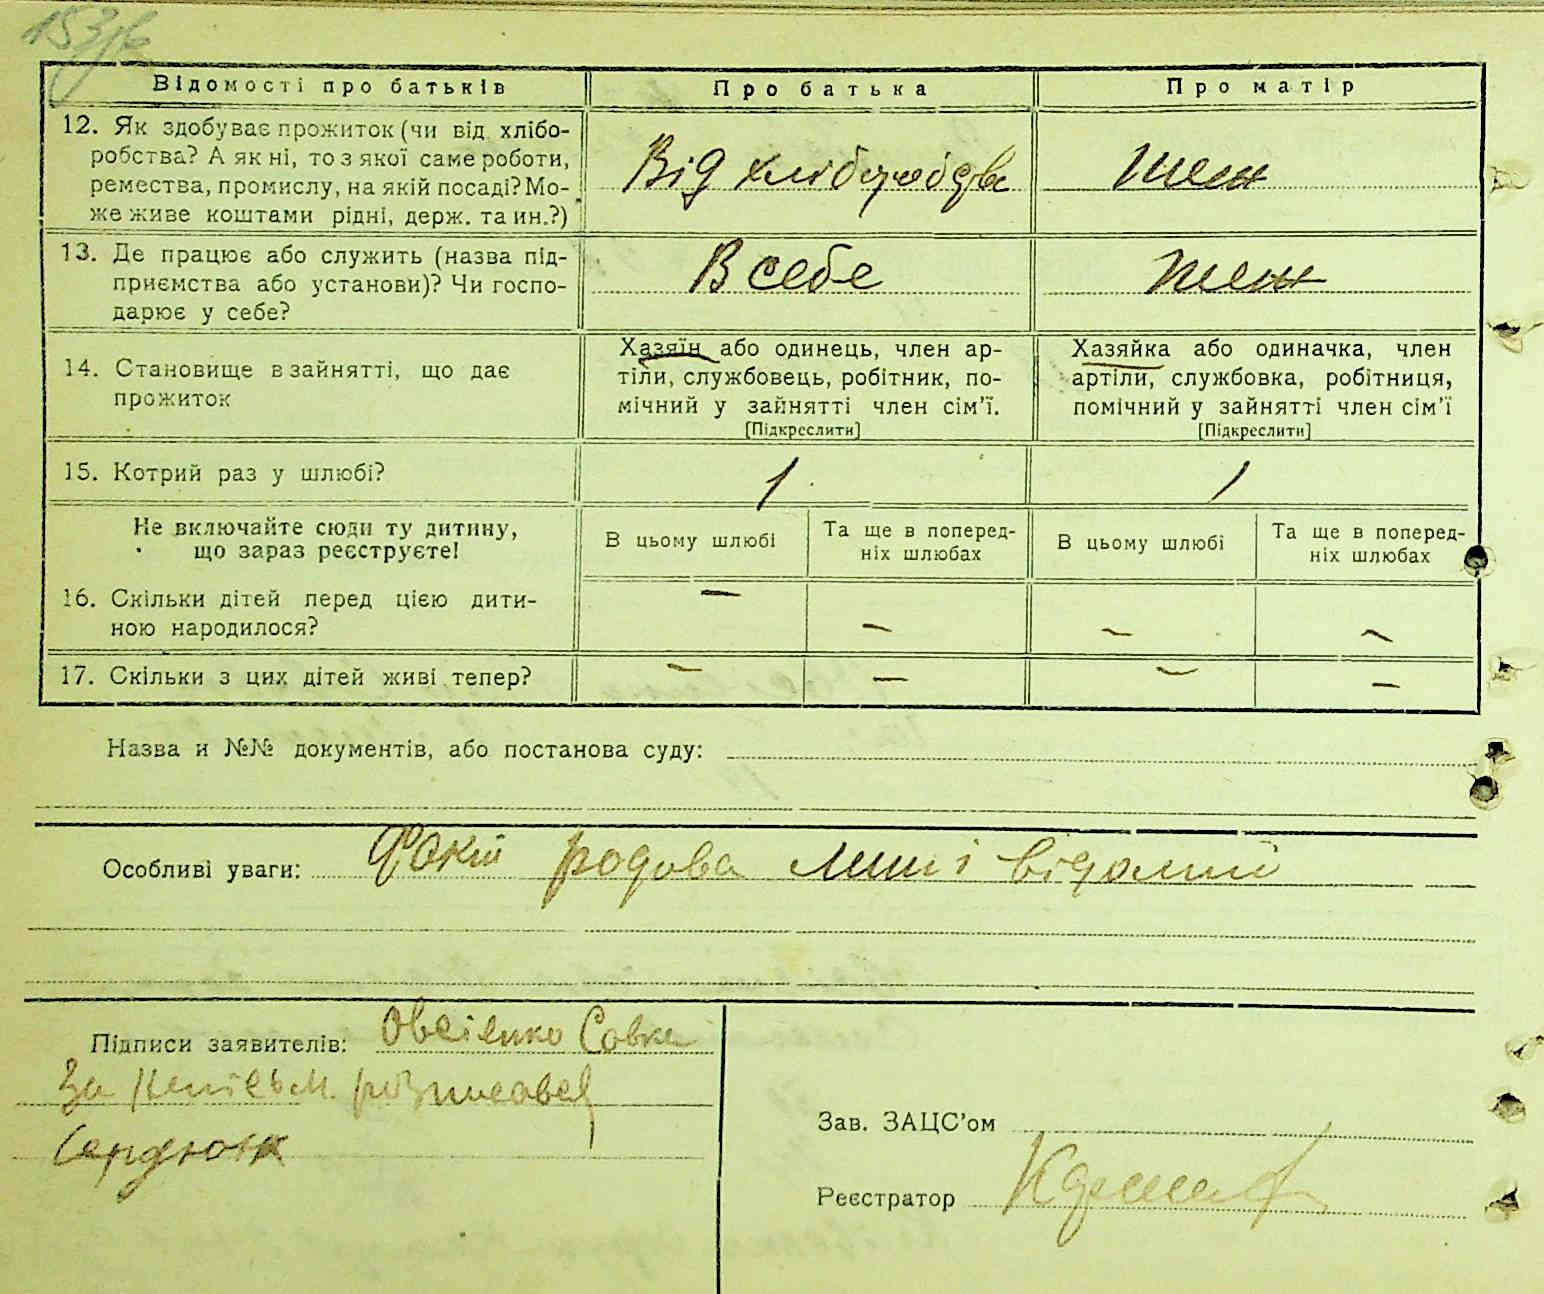 153
Відомості про батьків Про батька Про матір
12. Як здобуває прожиток (чи від хлібо- робства? А як ні, то з якої саме роботи, ремества, промислу, на якій посаді? Мо- же живе коштами рідні, держ. та ин.?)
Від хліборобства
теж
13. Де працює або служить (назва під- приємства або установи)? Чи госпо- дарює у себе?
В себе
теж
14. Становище в зайнятті, що дає прожиток
Хазяїн або одинець, член ар-
тіли, службовець, робітник, по-
мічний у зайнятті член сім’ї.
[Підкреслити]
Хазяйка або одиначка, член
артіли, службовка, робітниця,
помічний у зайнятті член сім’ї
[Підкреслити]
15. Котрий раз у шлюбі? 1 1
Не включайте сюди ту дитину,
що зараз реєструєте!
В цьому шлюбі
Та ще в поперед-
ніх шлюбах
В цьому шлюбі
Та ще в поперед-
ніх шлюбах
16. Скільки дітей перед цією дити-
ною народилося? — — — —
17. Скільки з цих дітей живі тепер? — — — —
Назва и №№ документів, або постанова суду:
Особливі уваги: родова мині відомий
Підписи заявителів: Овсієнко Савка
За розписався
Сердюк
Зав. ЗАЦС’ом
Реєстратор